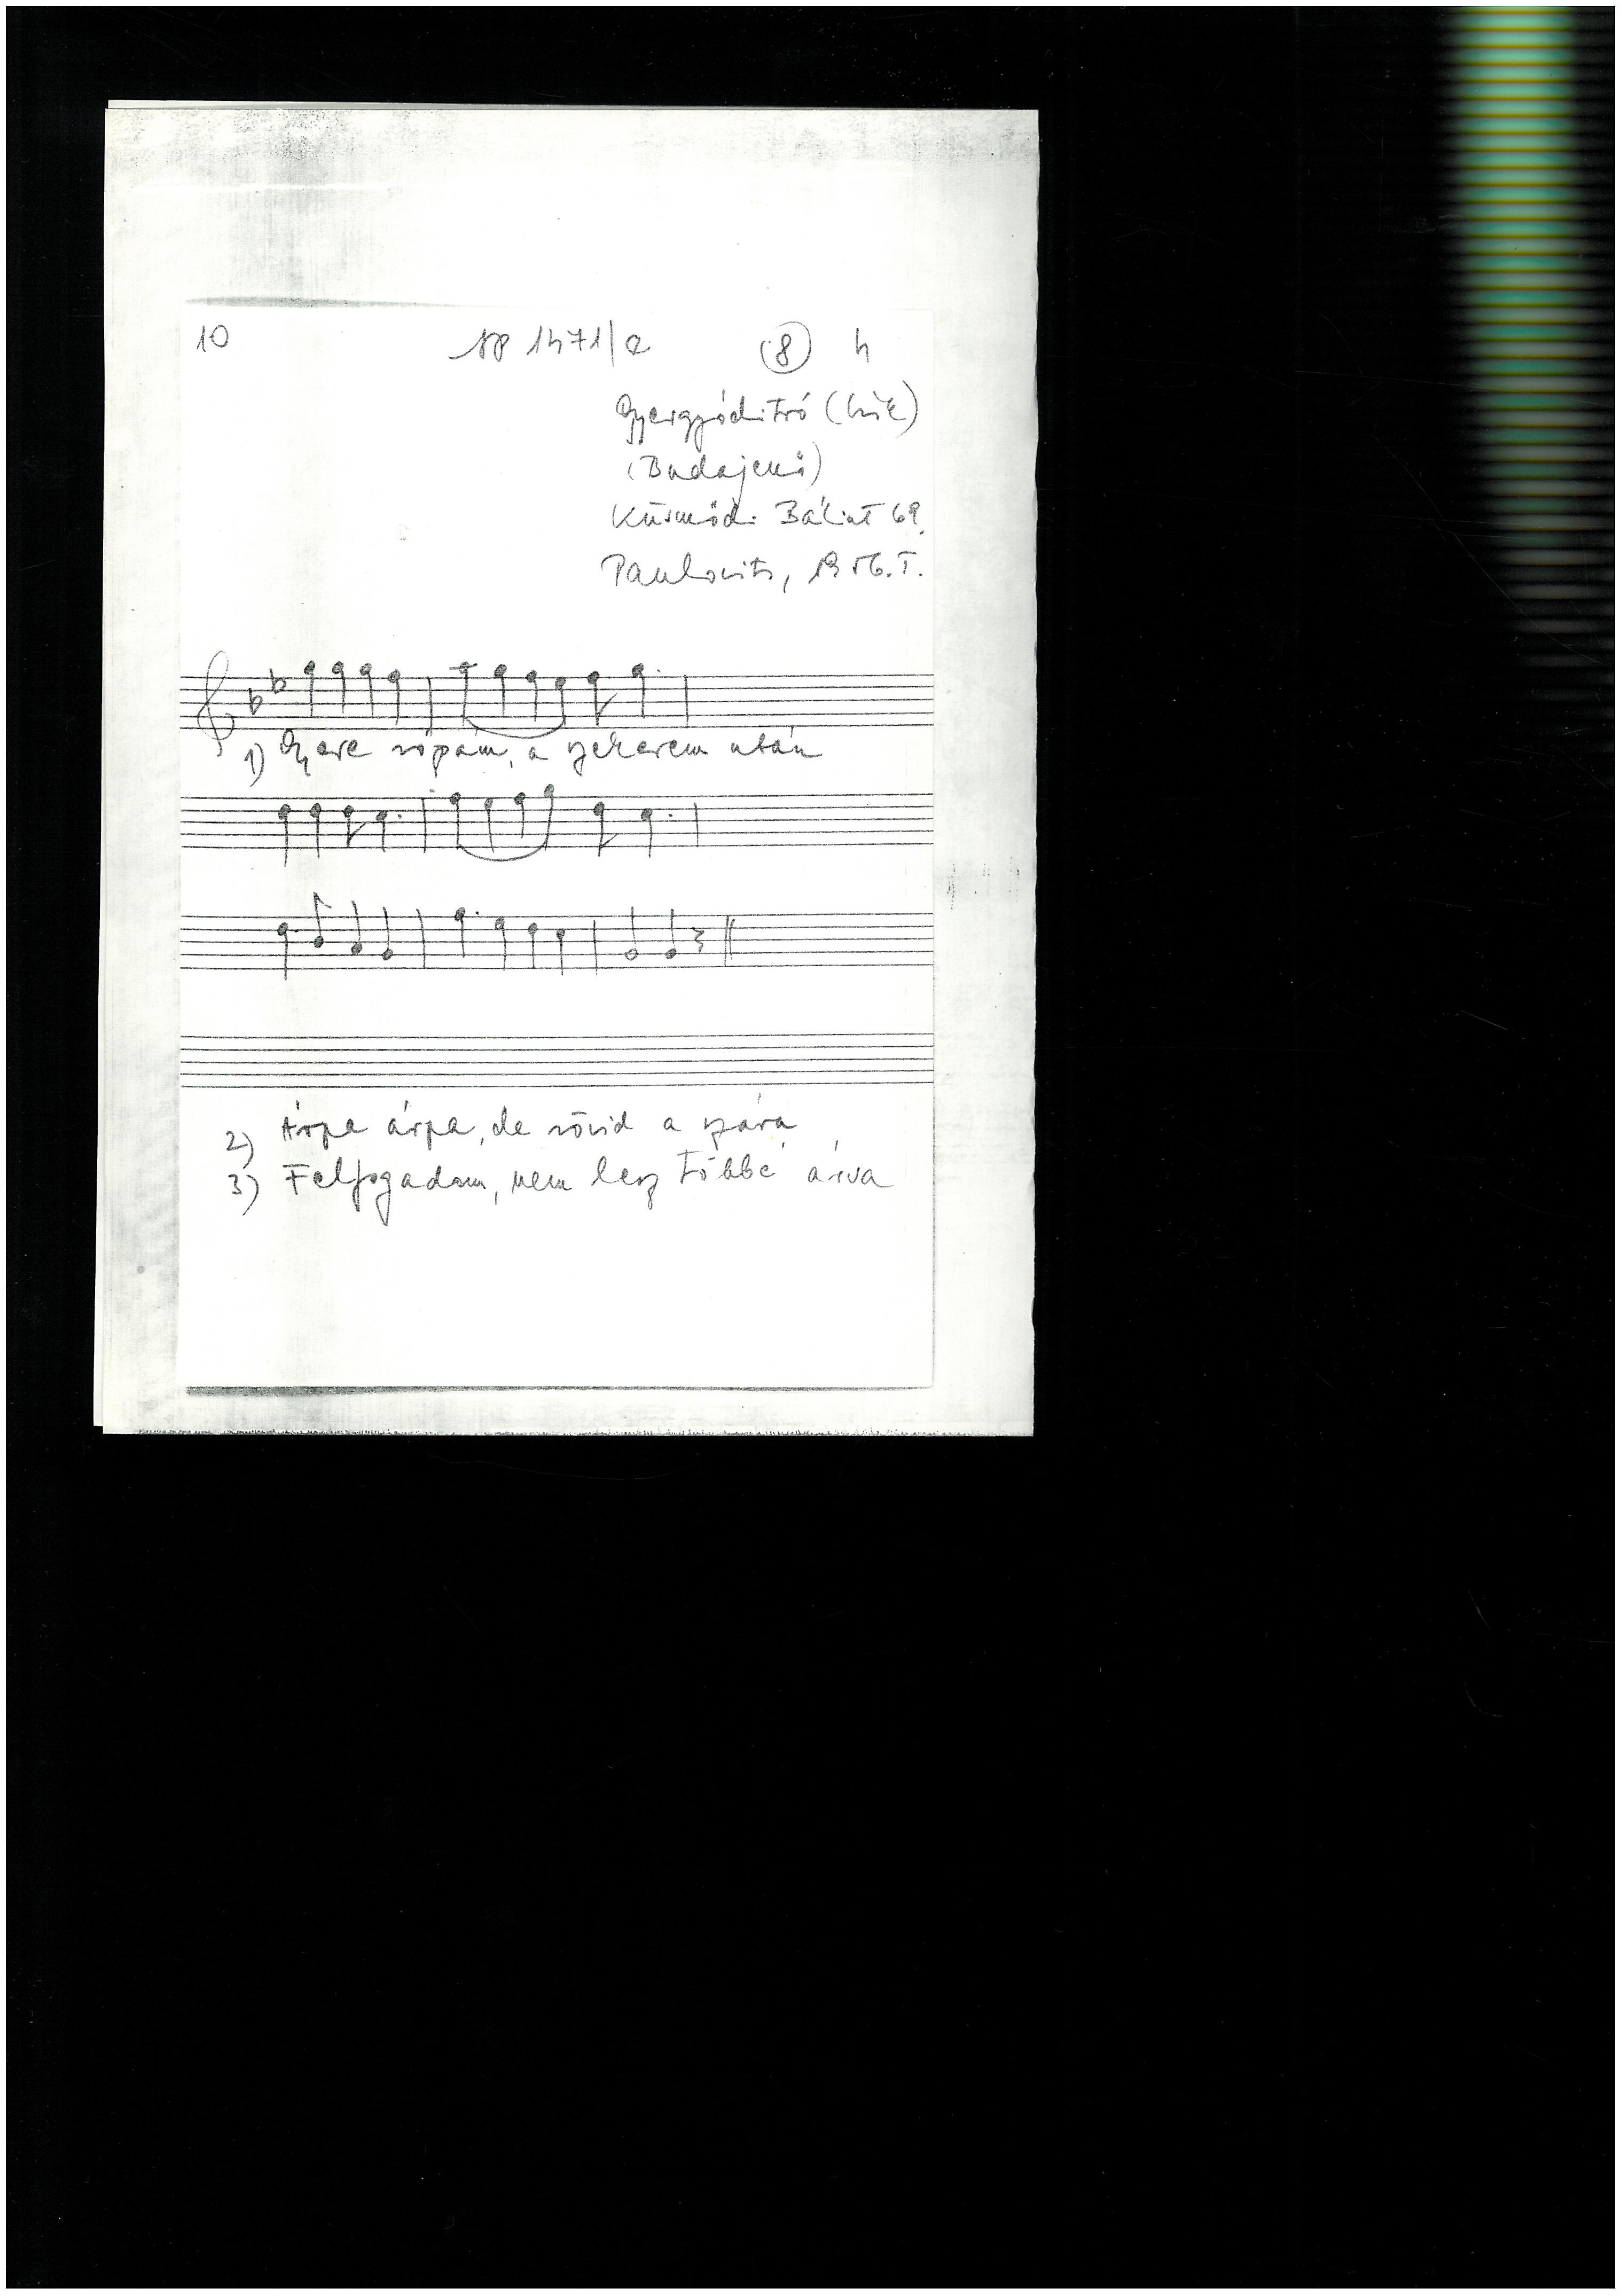 10 AP 1471/a (8) 4
Gyergyóditró (Csík)
(Budajenő)
Küsmődi Bálint 69
Paulovits, 1956. I.
1) Gyere rózsám, a szekerem után
2) Árpa árpa, de rövid a szára
3) Felfogadom, nem lesz többé árva